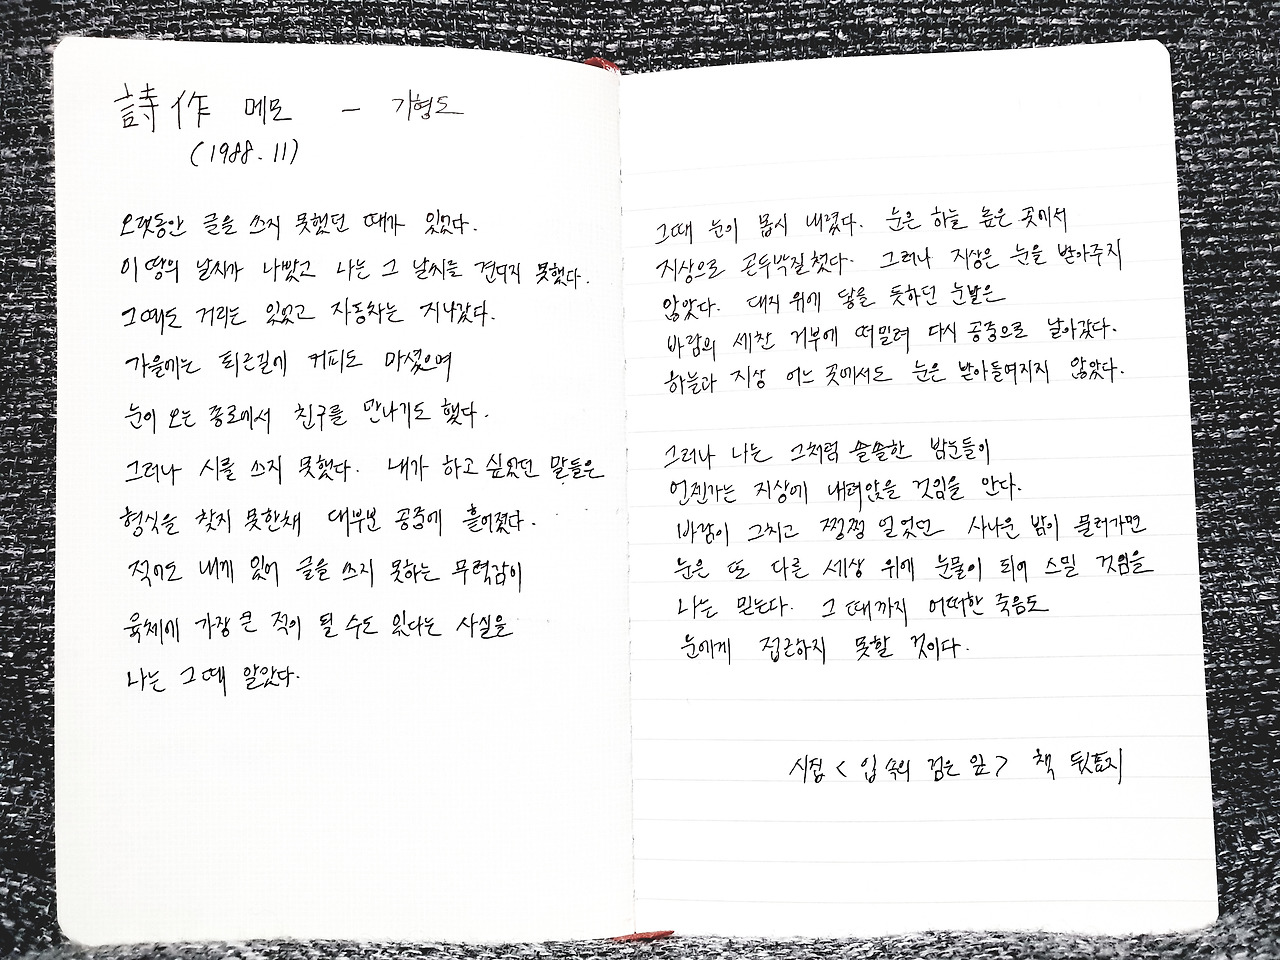 詩作 메모 - 기형도
(1988.11)
오랫동안 글을 쓰지 못했던 때가 있었다.
이 땅의 날씨가 나빴고 나는 그 날씨를 견디지 못했다.
그때도 거리는 있었고 자동차는 지나갔다.
가을에는 퇴근길에 커피도 마셨으며
눈이 오는 종로에서 친구를 만나기도 했다.
그러나 시를 쓰지 못했다. 내가 하고 싶었던 말들은
형식을 찾지 못한채 대부분 공중에 흩어졌다.
적어도 내게 있어 글을 쓰지 못하는 무력감이
육체에 가장 큰 적이 될 수도 있다는 사실을
나는 그때 알았다.
그때 눈이 몹시 내렸다. 눈은 하늘 높은 곳에서
지상으로 곤두박질쳤다. 그러나 지상은 눈을 받아주지
않았다. 대지 위에 닿을 듯하던 눈발은
바람의 세찬 거부에 떠밀려 다시 공중으로 날아갔다.
하늘과 지상 어느 곳에서도 눈은 받아들여지지 않았다.
그러나 나는 그처럼 쓸쓸한 밤눈들이
언젠가는 지상에 내려앉을 것임을 안다.
바람이 그치고 쩡쩡 얼었던 사나운 밤이 물러가면
눈은 또 다른 세상 위에 눈물이 되어 스밀 것임을
나는 믿는다. 그때까지 어떠한 죽음도
눈에게 접근하지 못할 것이다.
시집 < 입 속의 검은 잎 > 책 뒷표지